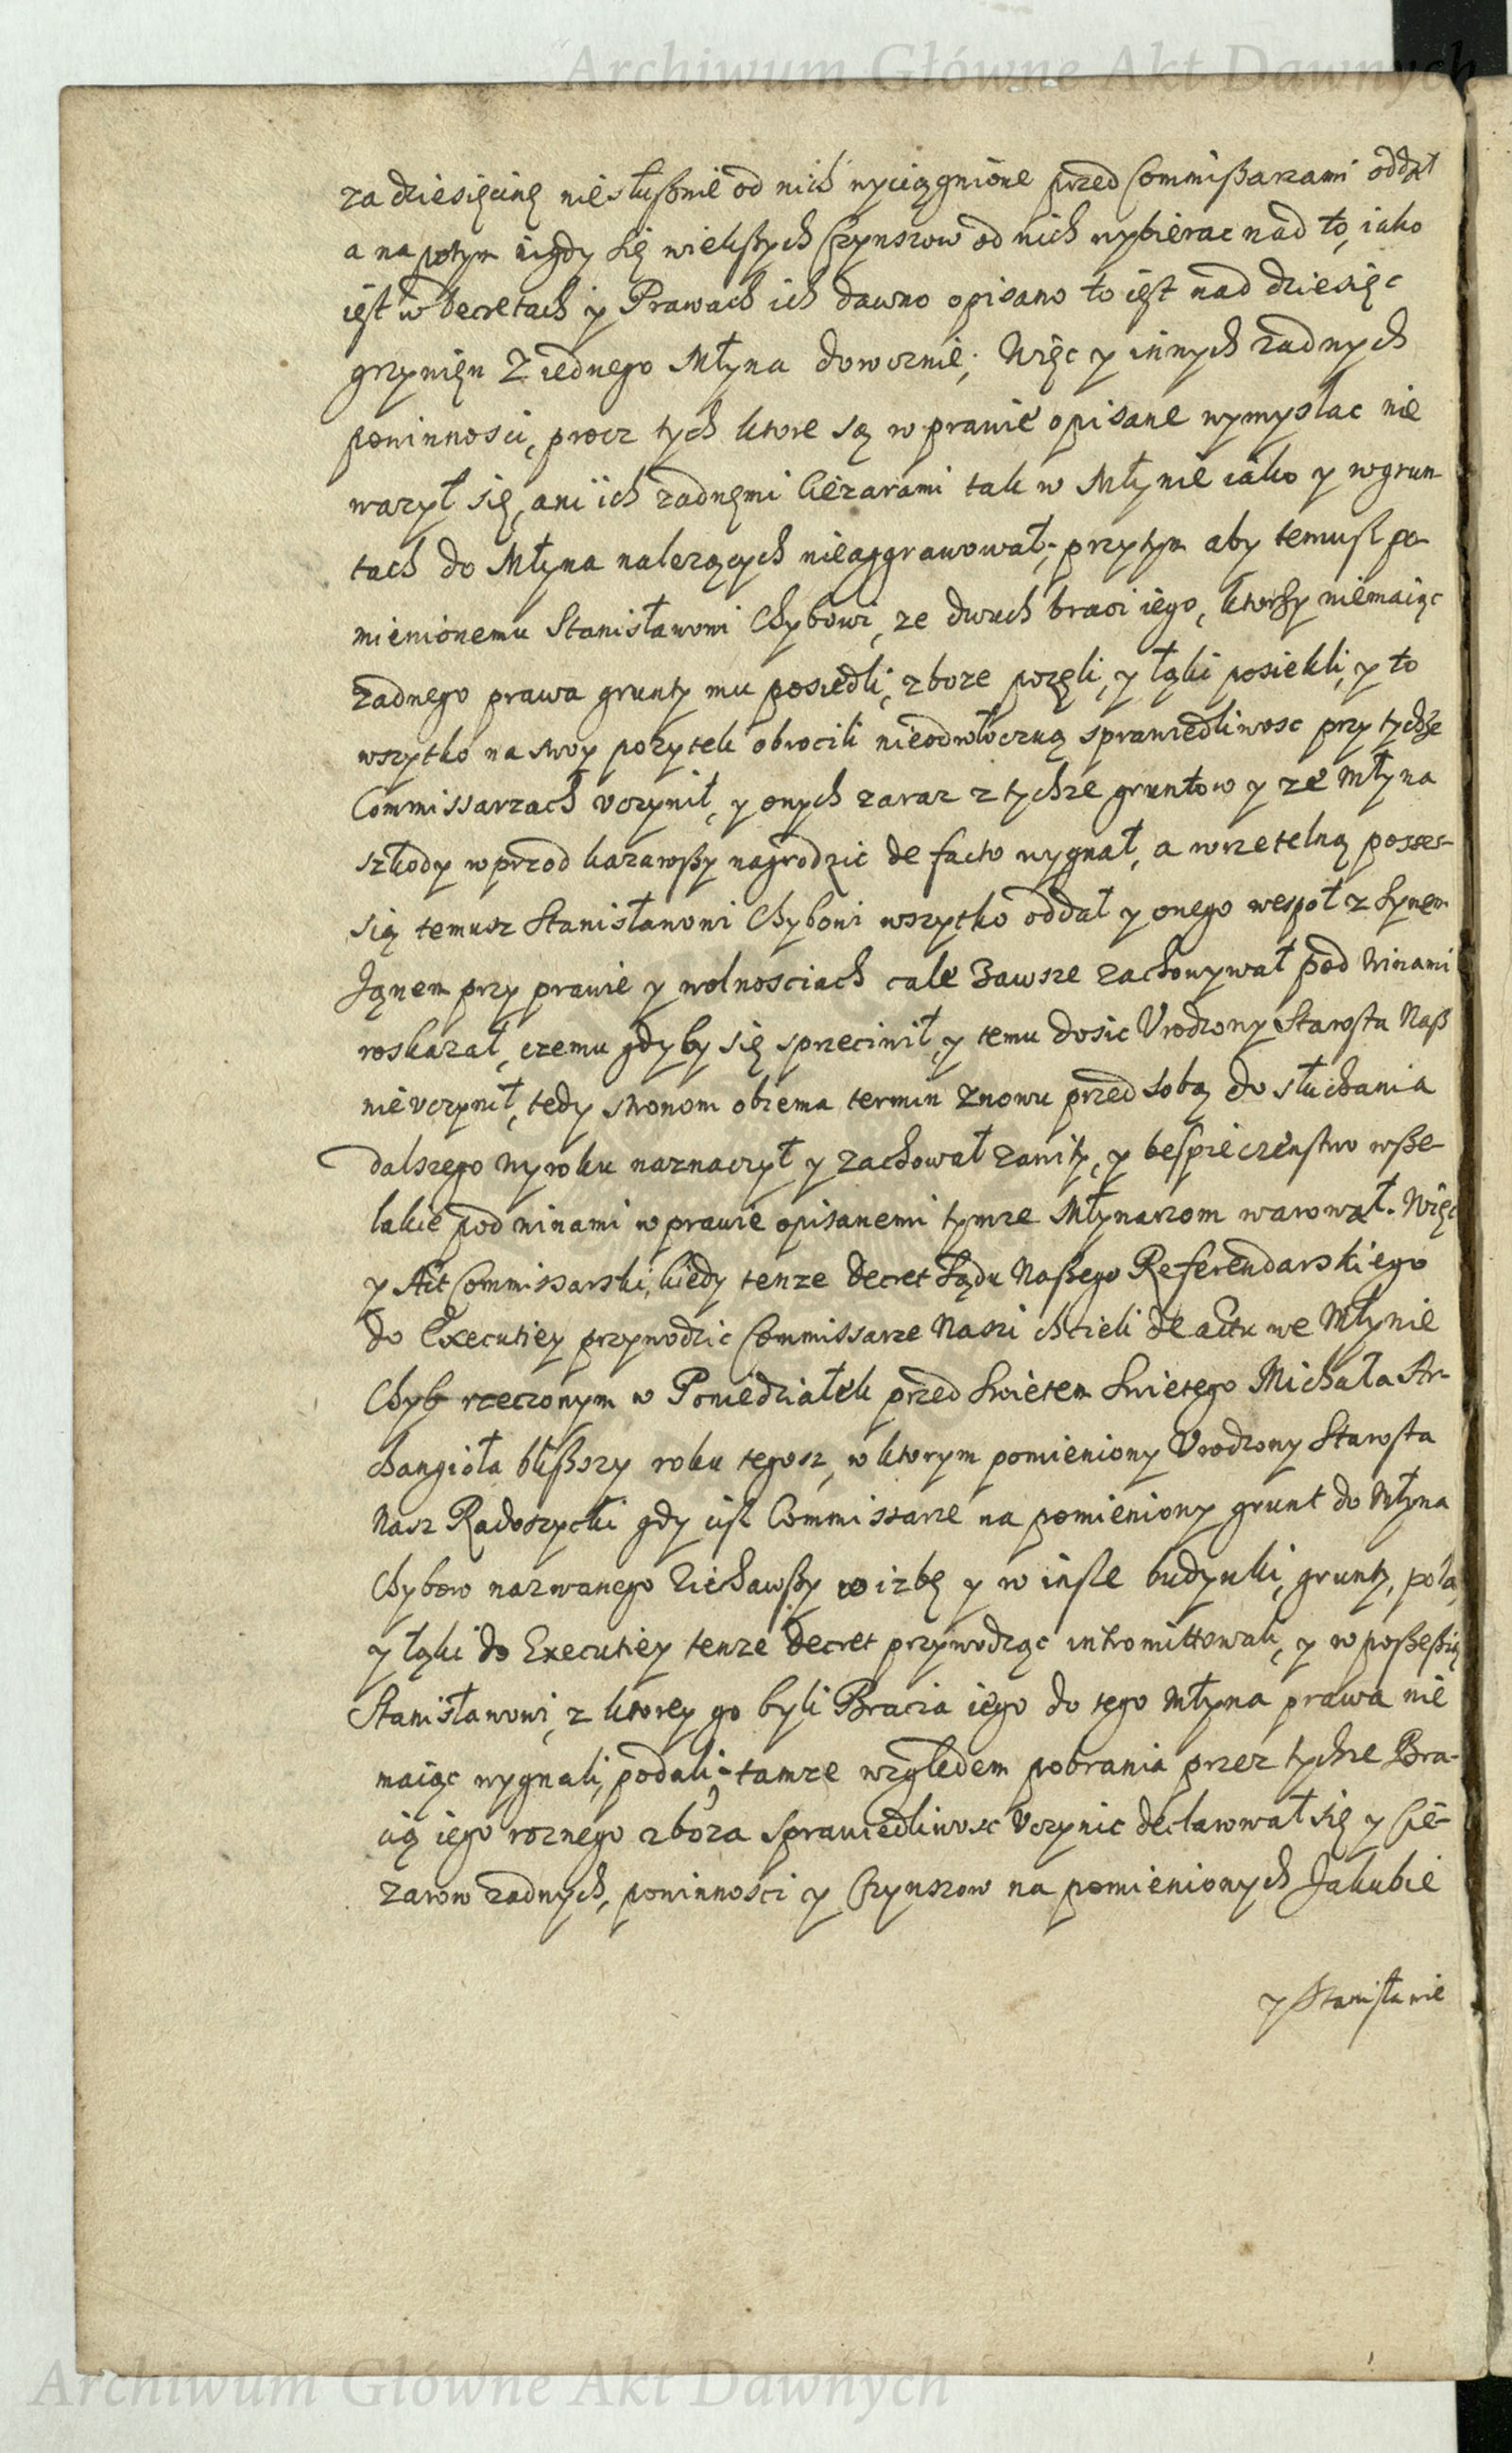 Archiwum Główne Akt Dawnych
za dziesięcinę niesłusznie od nich wyciągnione przed Commißarzami oddał
a na potym nigdy się wielkßych Czynszow od nich wybierac nad to, iako
iest w Decretach y Prawach ich dawno opisano to iest nad dziesięc
grzywien z iednego Młyna dowocznie; Więc y innych zadnych
powinnosci, procz tych ktore są w prawie opisane wymyslac nie
wazył się, ani ich zadnęmi Cięzarami tak w Młynie iako y w grun-
tach do Młyna nalezących nieaggrawował; przytym aby temusz po-
mienionemu Stanisławowi Chybowi, ze dwuch braci iego, ktorßy niemaiąc
zadnego prawa grunty mu posiedli, zboze pozęli, y łąki posiekli, y to
wszytko na swoy pozytek obrocili nieodwłoczną sprawiedliwosc przy tychze
Commissarzach vczynił, y onych zaraz z tychze gruntow y ze Młyna
szkody wprzod kazawßy nagrodzic de facto wygnał, a w rzetelną posses-
sią temusz Stanisławowi Chybowi wszytko oddał y onego wespoł z Synem
Janem przy prawie y wolnosciach cale zawsze zachowywał pod winami
roskazał, czemu gdyby się sprzeciwił, y temu dosic Vrodzony Starosta Naß
nie vczynił, tedy stronom obiema termin znowu przed sobą do słuchania
dalszego wyroku naznaczył y zachował zawity, y bespieczenstwo wße-
lakie pod winami w prawie opisanemi tymze Młynarzom warował. Więc
y Akt Commissarski, kiedy tenze Decret Sądu Naßego Referendarskiego
do Executiey przywodzic Commissarze Naszi chcieli de actu we Młynie
Chyb rzeczonym w Poniedziałek przed Swietem Swietego Michała Ar-
changioła blißszy roku tegosz, w ktorym pomieniony Vrodzony Starosta
Nasz Radoszycki gdy cisz Commissarze na pomieniony grunt do Młyna
Chybow nazwanego ziechawßy w izbę y w insze budynki, grunty, pola,
y łąki do Executiey tenze Decret przywodząc intromittowali, y w poßeßią
Stanisławowi, z ktorey go byli Bracia iego do tego Młyna prawa nie
maiąc wygnali, podali; tamze względem pobrania przez tychze Bra-
cią iego roznego zboza sprawiedliwosc Vczynic declarował się y Cię-
zarow zadnych, powinnosci y Czynszow na pomienionych Jakubie
y Stanisławie
Archiwum Główne Akt Dawnych